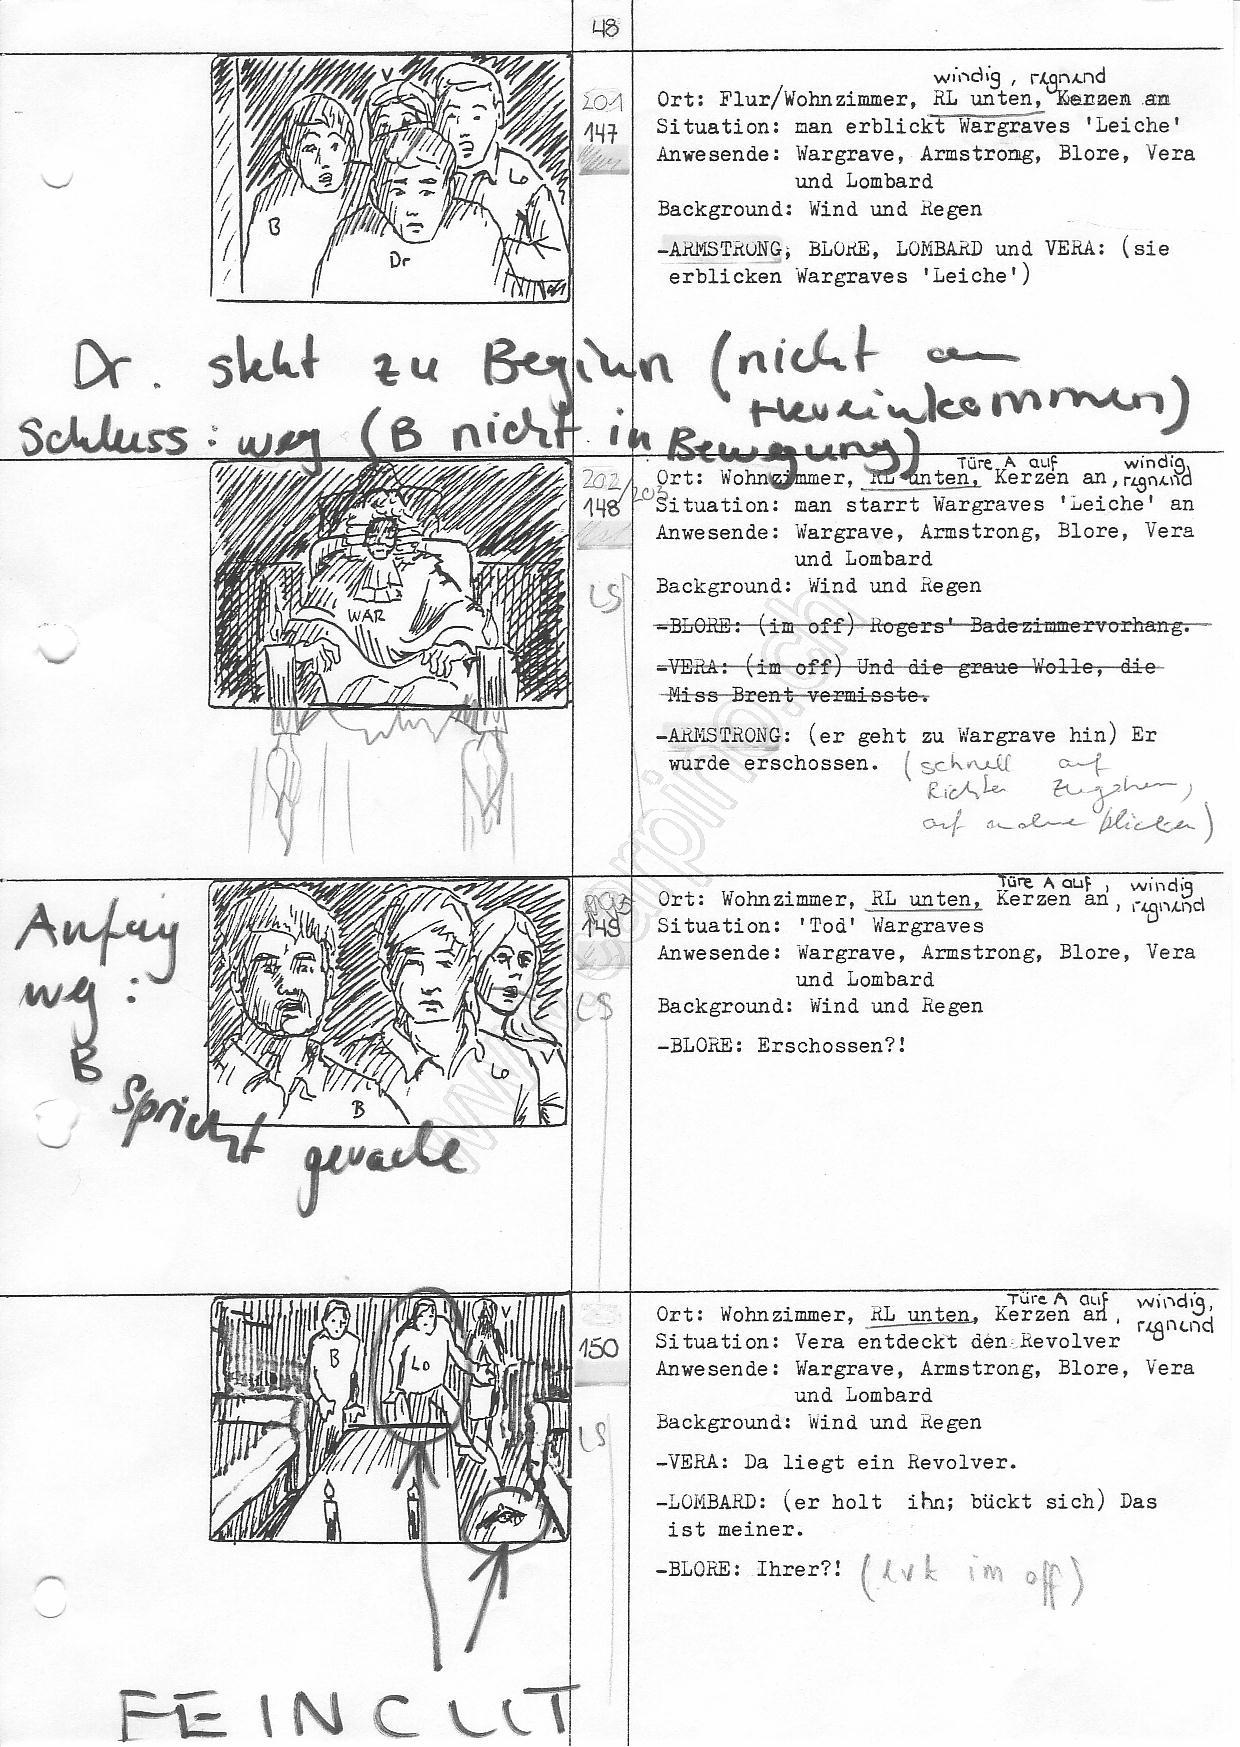 48
V
B
Dr
Lo
201
147
windig, regnend
Ort: Flur/Wohnzimmer, RL unten, Kerzen an
Situation: man erblickt Wargraves 'Leiche'
Anwesende: Wargrave, Armstrong, Blore, Vera
und Lombard
Background: Wind und Regen
-ARMSTRONG, BLORE, LOMBARD und VERA: (sie
erblicken Wargraves 'Leiche')
Dr. steht zu Beginn (nicht am
Hereinkommen)
Schluss: weg (B nicht in Bewegung)
WAR
202/203
148
LS
Türe A auf windig,
Ort: Wohnzimmer, RL unten, Kerzen an, regnend
Situation: man starrt Wargraves 'Leiche' an
Anwesende: Wargrave, Armstrong, Blore, Vera
und Lombard
Background: Wind und Regen
-BLORE: (im off) Rogers' Badezimmervorhang.
-VERA: (im off) Und die graue Wolle, die
Miss Brent vermisste.
-ARMSTRONG: (er geht zu Wargrave hin) Er
wurde erschossen. (schnell auf
Richter zugehen,
auf andere blicken)
Anfang
weg:
B
spricht gerade
B
Lo
V
149
LS
Türe A auf, windig
Ort: Wohnzimmer, RL unten, Kerzen an, regnend
Situation: 'Tod' Wargraves
Anwesende: Wargrave, Armstrong, Blore, Vera
und Lombard
Background: Wind und Regen
-BLORE: Erschossen?!
B
Lo
V
150
LS
Türe A auf windig,
Ort: Wohnzimmer, RL unten, Kerzen an, regnend
Situation: Vera entdeckt den Revolver
Anwesende: Wargrave, Armstrong, Blore, Vera
und Lombard
Background: Wind und Regen
-VERA: Da liegt ein Revolver.
-LOMBARD: (er holt ihn; bückt sich) Das
ist meiner.
-BLORE: Ihrer?! (evt im off)
FEINCUT